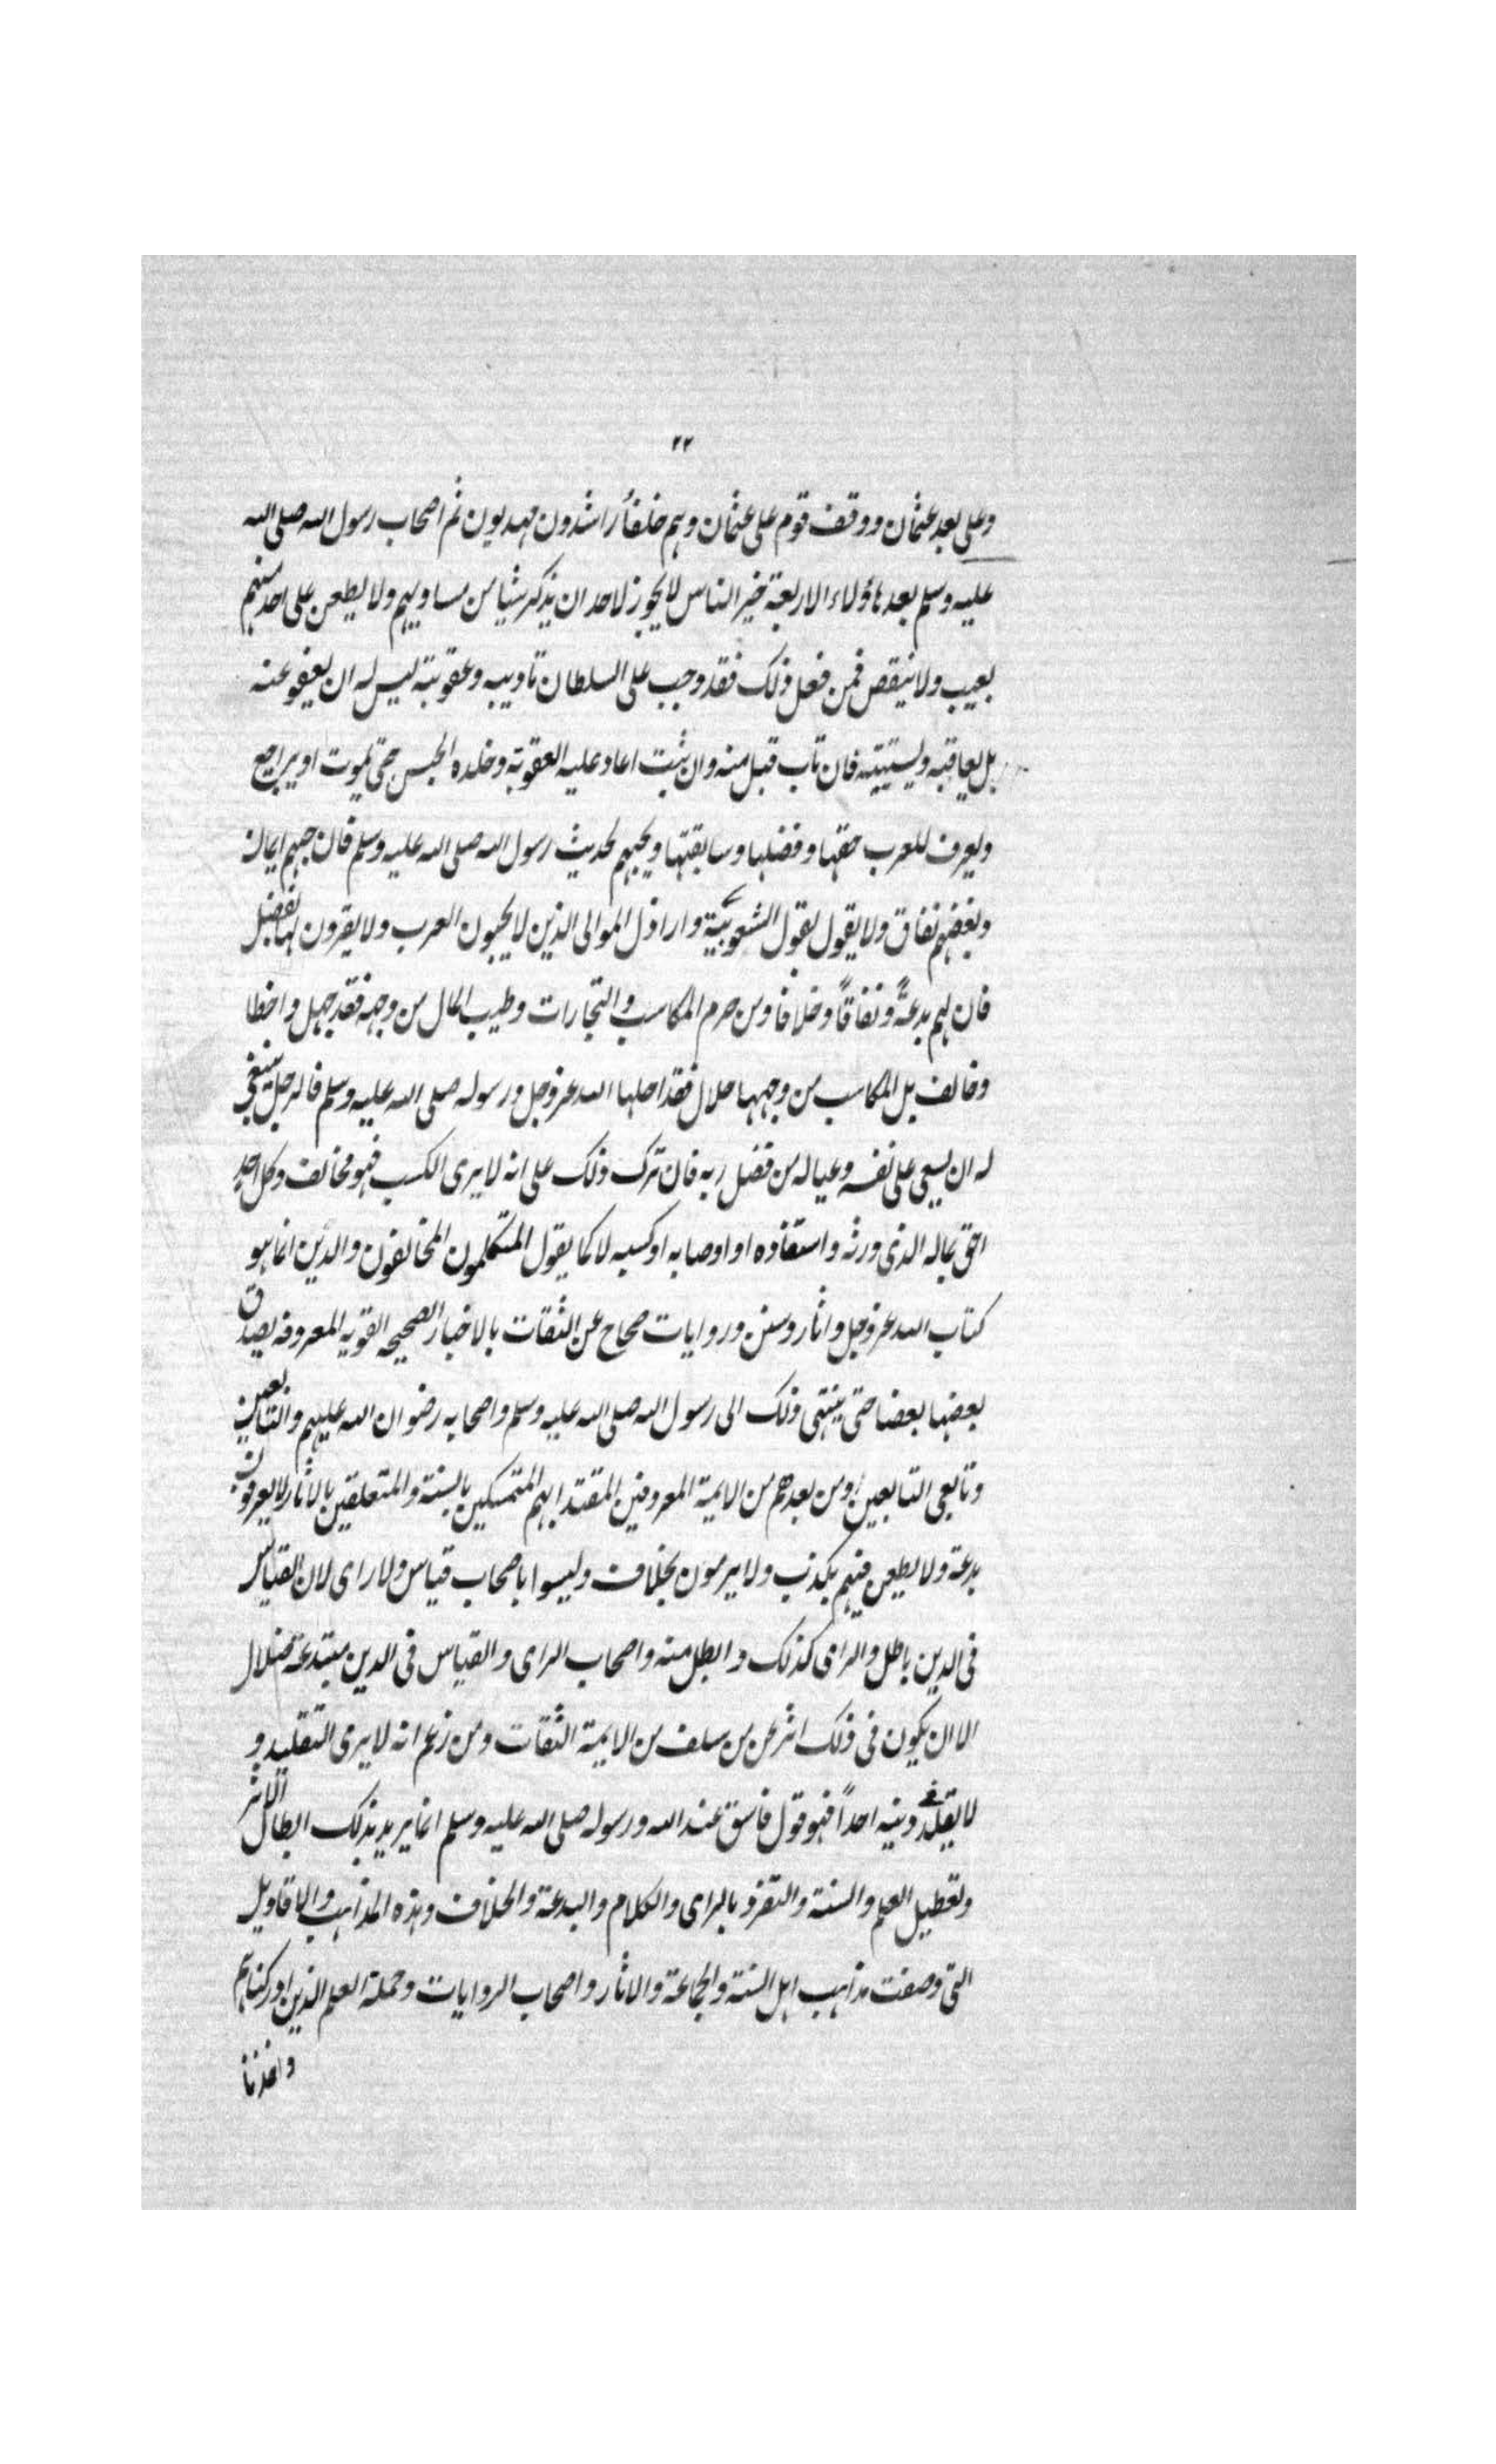 ٢٢
وعلى بعد عثمان ووقف قوم على عثمان وهم خلفأ راشدون مهديون ثم اصحاب رسول الله صلى الله
عليه وسلم بعد هاؤلاء الاربعة خير الناس لا يجوز لاحد ان يذكر شيا من مساويهم ولا يطعن على احد منهم
بعيب ولا نيقص فمن فعل ذلك فقد وجب على السلطان تاديبه وعقوبته ليس له ان يعفو عنه
بل يعاقبه ويستتيبه فان تاب قبل منه وان ثبت اعاد عليه العقوبة وخلده الحبس حتى يموت او يراجع
ويعرف للعرب حقها وفضلها وسابقتها ويحبهم لحديث رسول الله صلى الله عليه وسلم فان حبهم ايمان
وبغضهم نفاق ولا يقول بقول الشعوبية واراذل الموالى الذين لا يحبون العرب ولا يقرون لها بفضل
فان لهم بدعةً ونفاقاً وخلافا ومن حرم المكاسب والتجارات وطيب المال من وجهه فقد جهل واخطا
وخالف بل المكاسب من وجهها حلال فقد احلها الله عز وجل ورسوله صلى الله عليه وسلم فالرجل ينبغي
له ان يسعى على نفسه وعياله من فضل ربه فان ترك ذلك على انه لا يرى الكسب فهو مخالف وكل احدٍ
احق بماله الذى ورثه واستفاده او اوصا به او كسبه لا كما يقول المتكلمون المخالفون والدين انما هو
كتاب الله عز وجل واثار وسنن وروايات صحاح عن الثقات بالاخبار الصحيحه القويه المعروفه يصدق
بعضها بعضا حتى ينتهى ذلك الى رسول الله صلى الله عليه وسلم واصحابه رضوان الله عليهم والتابعين
وتابعى التابعين ومن بعدهم من الايمة المعروفين المقتدا بهم المتمسكين بالسنة والمتعلقين بالاثار لا يعرفون
بدعة ولا يطعن فيهم بكذب ولا يرمون بخلاف وليسوا باصحاب قياس ولا راى لان القياس
فى الدين باطل والراى كذلك وابطل منه واصحاب الراى والقياس فى الدين مبتدعة ضلال
الا ان يكون فى ذلك اثر عمن سلف من الايمة الثقات ومن زعم انه لا يرى التقليد و
لا يقلد دينه احداً فهو قول فاسق عند الله ورسوله صلى الله عليه وسلم انما يريد بذلك ابطال الاثر
وتعطيل العلم والسنة والتفرد بالراى والكلام والبدعة والخلاف وهذه المذاهب والاقاويل
التى وصفت مذاهب اهل السنة والجماعة والاثار واصحاب الروايات وحملة العلم الذين ادركناهم
واخذنا